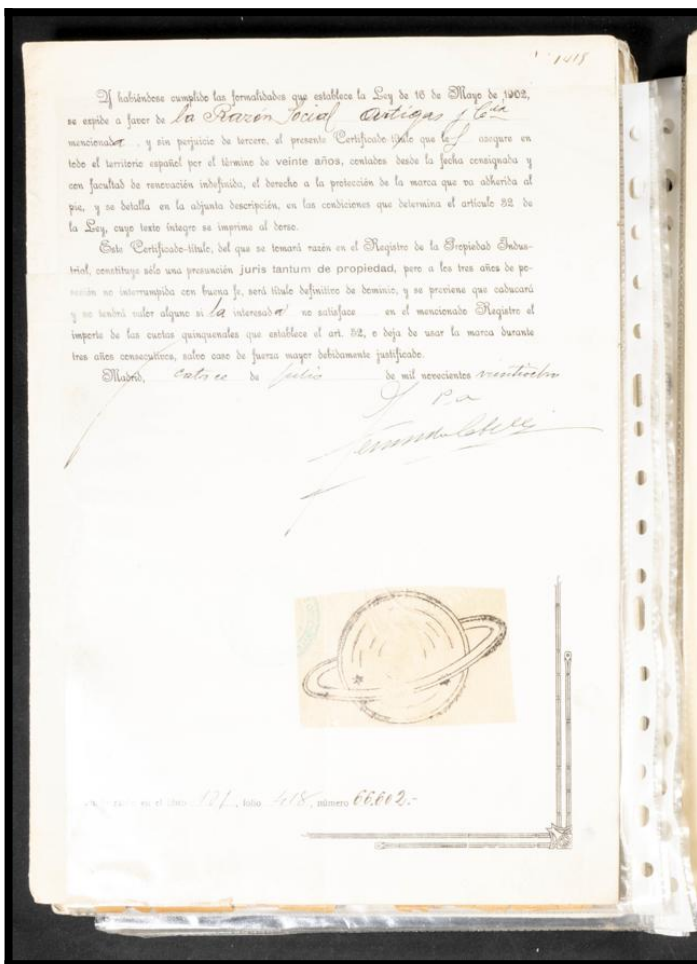 Y habiéndose cumplido las formalidades que establece la Ley de 16 de Mayo de 1902,
se expide a favor de la Razón Social Artigas y Cía
mencionada y sin perjuicio de tercero, el presente Certificado-título que le asegure en
todo el territorio español por el término de veinte años, contados desde la fecha consignada y
con facultad de renovación indefinida, el derecho a la protección de la marca que va adherida al
pie, y se detalla en la adjunta descripción, en las condiciones que determina el artículo 32 de
la Ley, cuyo texto íntegro se imprime al dorso.
Este Certificado-título, del que se tomará razón en el Registro de la Propiedad Indus-
trial, constituye sólo una presunción juris tantum de propiedad, pero a los tres años de po-
sesión no interrumpida con buena fe, será título definitivo de dominio, y se previene que caducará
y no tendrá valor alguno si la interesada no satisface en el mencionado Registro el
importe de las cuotas quinquenales que establece el art. 52, o deja de usar la marca durante
tres años consecutivos, salvo caso de fuerza mayor debidamente justificado.
Madrid, catorce de julio de mil novecientos veintiocho
P. A.
en el libro 121, folio 418, número 66.662.-